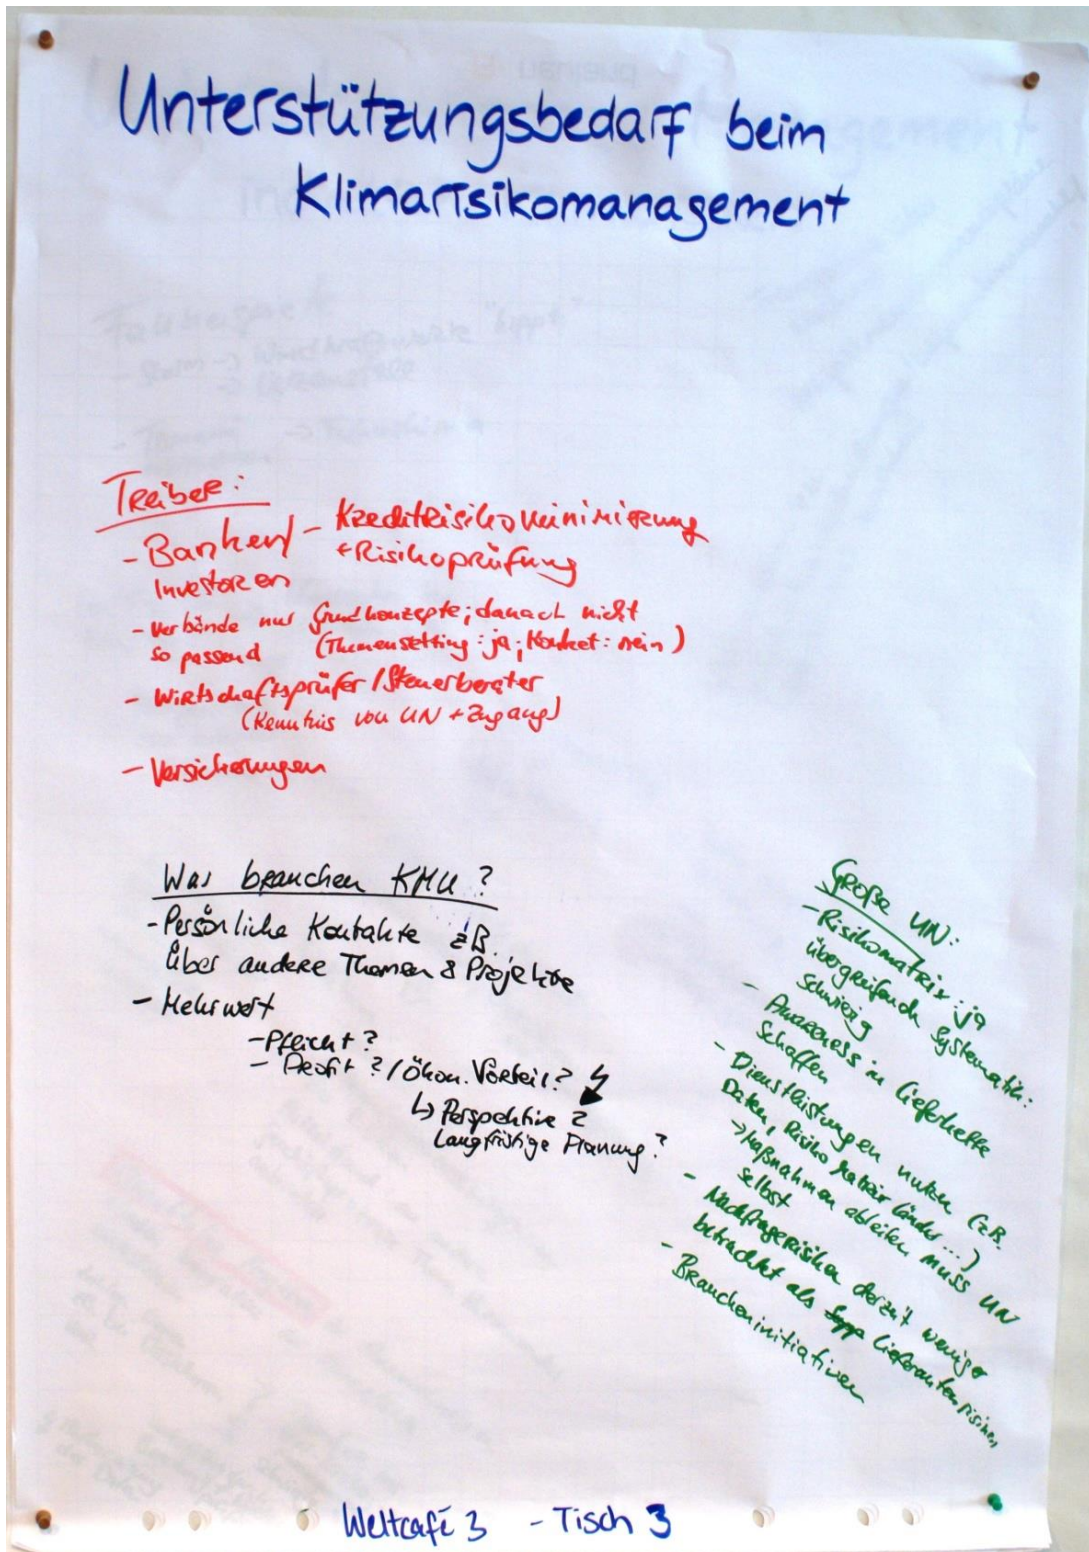 Unterstützungsbedarf beim
Klimarisikomanagement
Treiber:
- Banken/ - Kreditrisikominimierung
Investoren + Risikoprüfung
- Verbände nur Grundkonzepte; danach nicht
so passend (Themensetting: ja; Konkret: nein)
- Wirtschaftsprüfer / Steuerberater
(Kenntnis von UN + Zugang)
- Versicherungen
Was brauchen KMU?
- Persönliche Kontakte z.B.
über andere Themen & Projekte
- Mehrwert
- Pflicht?
- Profit? / Ökon. Vorteil?
↳ Perspektive?
Langfristige Planung?
Große UN:
- Risikomatrix: ja
übergreifende Systematik:
schwierig
- Awareness in Lieferkette
schaffen
- Dienstleistungen nutzen (z.B.
Daten, Risiko Länder...)
→ Maßnahmen ableiten muss UN
selbst
- Nachfragerisiken derzeit weniger
betrachtet als Lieferantenrisiken
- Brancheninitiativen
Weltcafé 3 - Tisch 3